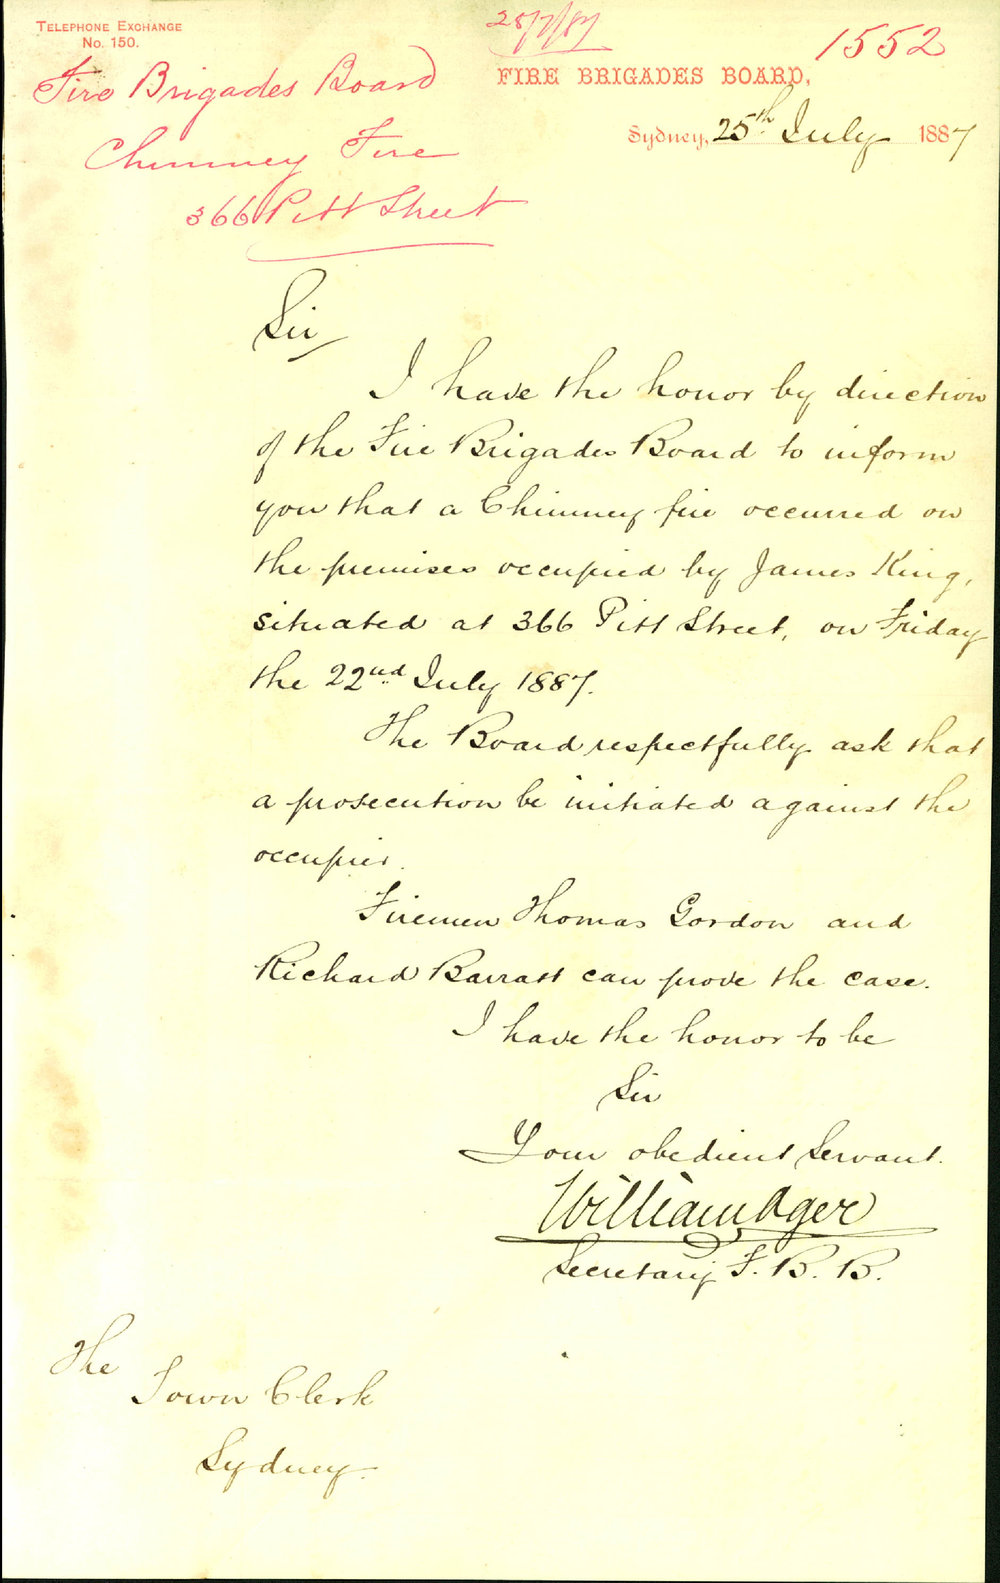 TELEPHONE EXCHANGE
No. 150.
28/7/87
1552
FIRE BRIGADES BOARD,
Sydney, 25th July 1887
Fire Brigades Board
Chimney Fire
366 Pitt Street
Sir
I have the honor by direction
of the Fire Brigades Board to inform
you that a Chimney fire occurred on
the premises occupied by James King,
situated at 366 Pitt Street, on Friday
the 22nd July 1887.
The Board respectfully ask that
a prosecution be initiated against the
occupier.
Firemen Thomas Gordon and
Richard Barratt can prove the case.
I have the honor to be
Sir
Your obedient Servant.
William Ager
Secretary F. B. B.
The
Town Clerk
Sydney.